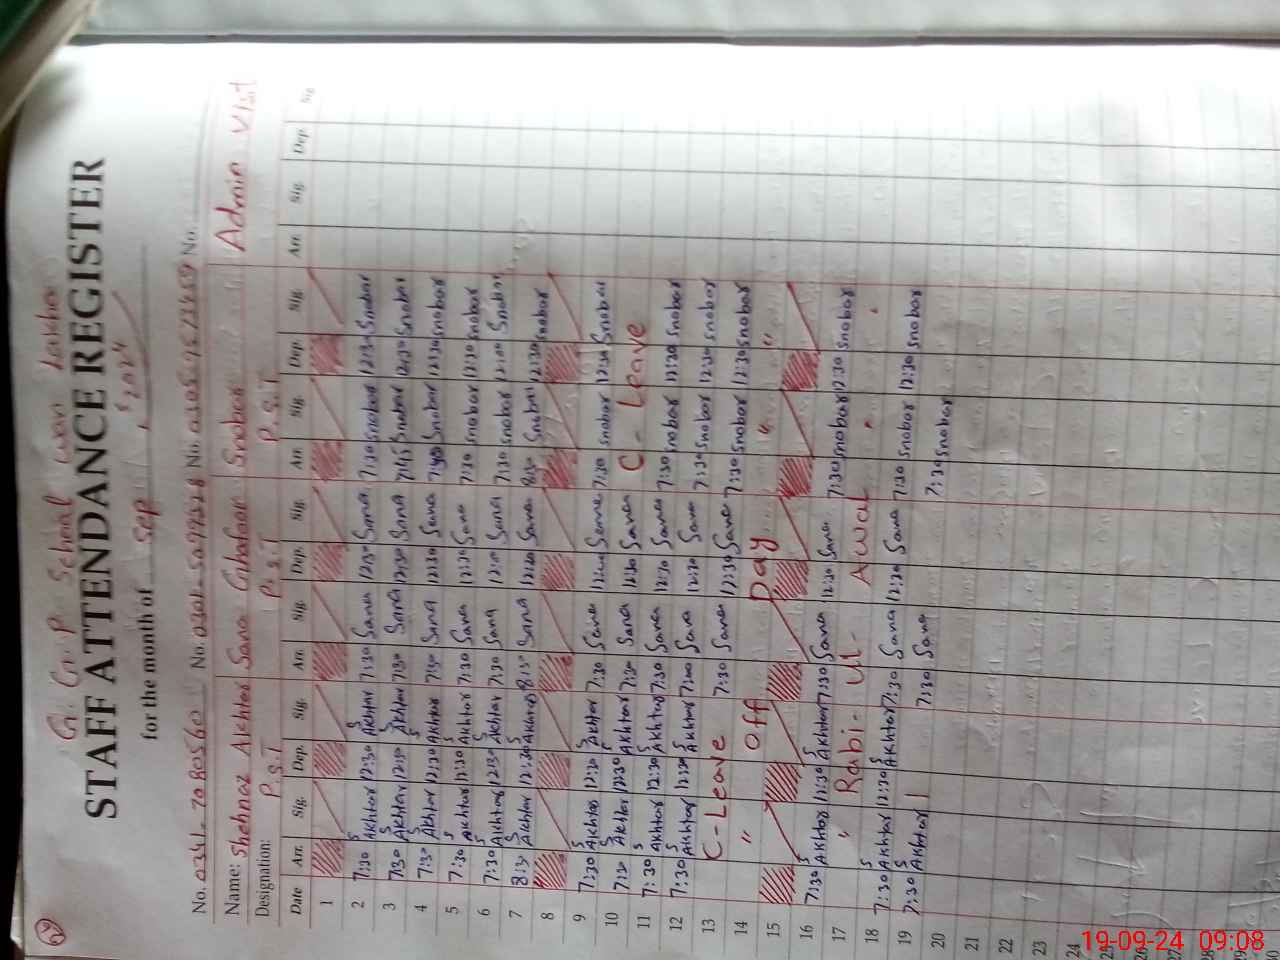 G. G. P School
STAFF ATTENDANCE REGISTER
for the month of Sep, 2024
No. No. No. No.
Name: Shehnaz Akhtar Sana Ghafoor Snober Admin Visit
Designation: P.S.T P.S.T P.S.T
Date Arr. Sig. Dep. Sig. Arr. Sig. Dep. Sig. Arr. Sig. Dep. Sig. Arr. Sig. Dep. Sig
1
2 7:30 S Akhtar 12:30 S Akhtar 7:30 Sana 12:30 Sana 7:30 Snobar 12:30 Snobar
3 7:30 S Akhtar 12:30 S Akhtar 7:30 Sana 12:30 Sana 7:45 Snobar 12:30 Snobar
4 7:30 S Akhtar 12:30 S Akhtar 7:30 Sana 12:30 Sana Snobar 12:30 Snobar
5 7:30 S Akhtar 12:30 Akhtar 7:30 Sana 12:30 Sana 7:30 Snobar 12:30 Snobar
6 7:30 S Akhtar 12:30 S Akhtar 7:30 Sana Sana 7:30 Snobar 12:00 Snobar
7 8:30 S Akhtar 12:30 S Akhtar 8:30 Sana 12:30 Sana 8:30 Snobar 12:30 Snobar
8
9 7:30 S Akhtar 12:30 S Akhtar 7:30 Sana Sana 7:30 Snobar 12:30 Snobar
10 7:30 S Akhtar 12:30 S Akhtar 7:30 Sana 12:30 Sana C - Leave
11 7:30 S Akhtar 12:30 S Akhtar 7:30 Sana 12:30 Sana 7:30 Snobar 12:30 Snobar
12 7:30 S Akhtar 12:30 S Akhtar Sana 12:30 Sana 7:30 Snobar 12:30 Snobar
13 C-Leave 7:30 Sana 12:30 Sana 7:30 Snobar 12:30 Snobar
14 " Off Day " "
15
16 7:30 S Akhtar 12:30 S Akhtar 7:30 Sana 12:30 Sana 7:30 Snobar 12:30 Snobar
17 " Rabi - Ul - Awal " "
18 7:30 S Akhtar 12:30 S Akhtar 7:30 Sana 12:30 Sana 7:30 Snobar 12:30 Snobar
19 7:30 S Akhtar 7:30 Sana 7:30 Snobar
20
21
22
23
24
25
26
27
28
29
30
19-09-24 09:08